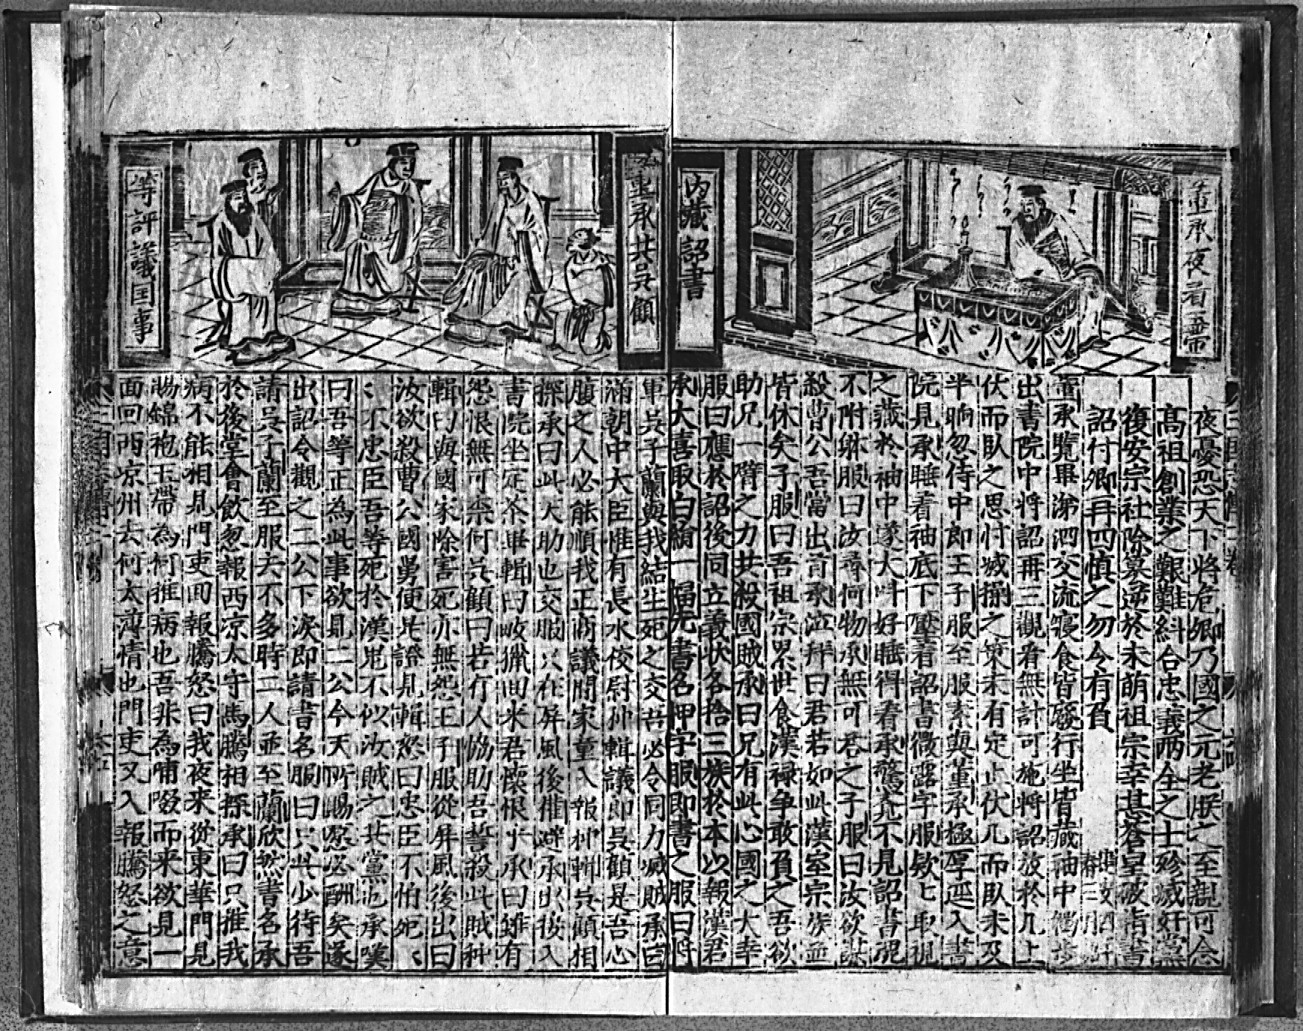 董承夜看
內藏詔書
夜憂恐天下將危卿乃國之元老朕之至親可念
高祖創業之艱難糾合忠義兩全之士殄滅奸黨
復安宗社除暴逆於未萌祖宗幸甚蒼皇破指書
詔付卿再四慎之勿令有負
董承覽畢涕泗交流寢食皆廢行坐皆藏袖中
出書院中將詔再三觀看無計可施將詔放於几上
伏而臥之思忖滅操之策未有定止伏几而臥未及
半晌忽侍中郎王子服至服素與董承極厚逕入書
院見承睡着袖底下壓着詔書微露字服欵七取視
之藏於袖中遂大叫好睡得着承驚覺不見詔書
不附體服曰汝尋何物承無可答之子服曰汝欲謀
殺曹公吾當出首承泣拜曰君若如此漢室宗族並
皆休矣子服曰吾祖宗累世食漢祿争敢負之吾欲
助兄一臂之力共殺國賊承曰兄有此心國之大幸
服曰應於詔後同立義狀各捨三族於本以報漢君
承大喜取白絹一幅先書名押字服即書之服曰將
董承共吳顧
等評議国事
軍吳子蘭與我結生死之交吾必令同力滅賊承曰
滿朝中大臣惟有長水校尉种輯議郎吳顧是吾心
腹之人必能順我正商議間家童入報种輯吳顧相
探承曰此大助也交服只在屏風後催避承出後入
書院坐定茶畢輯曰畋獵間來君懷恨乎承曰雖有
怨恨無可柰何吳顧曰若有人協助吾誓殺此賊种
輯曰海國家除害死亦無怨王子服從屏風後出曰
汝欲殺曹公國舅便是證見輯怒曰忠臣不怕死
不忠臣吾等死於漢鬼不似汝賊之共黨也承嘆
曰吾等正為此事欲見二公今天所賜忿必酬矣遂
出詔令觀之二公下淚即請書名服曰只此少待吾
請吳子蘭至服去不多時二人並至蘭欣然書名承
於後堂會飲忽報西凉太守馬騰相探承曰只推我
病不能相見門吏回報騰怒曰我夜來從東華門見
賜錦袍玉帶為何推病也吾非為哺啜而来欲見一
面回西凉州去何太薄情也門吏又入報騰怒之意